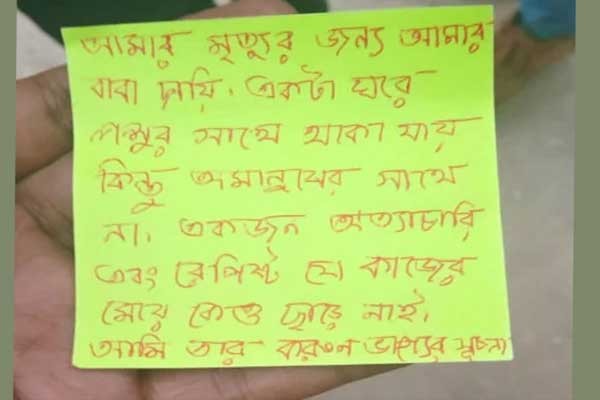 আমার মৃত্যুর জন্য আমার
বাবা দায়ি. একটা ঘরে
পশুর সাথে থাকা যায়
কিন্তু অমানুষের সাথে
না. একজন অত্যাচারি
এবং রেপিষ্ট যে কাজের
মেয়ে কেও ছাড়ে নাই.
আমি তার করুন ভাগ্যের সূচনা